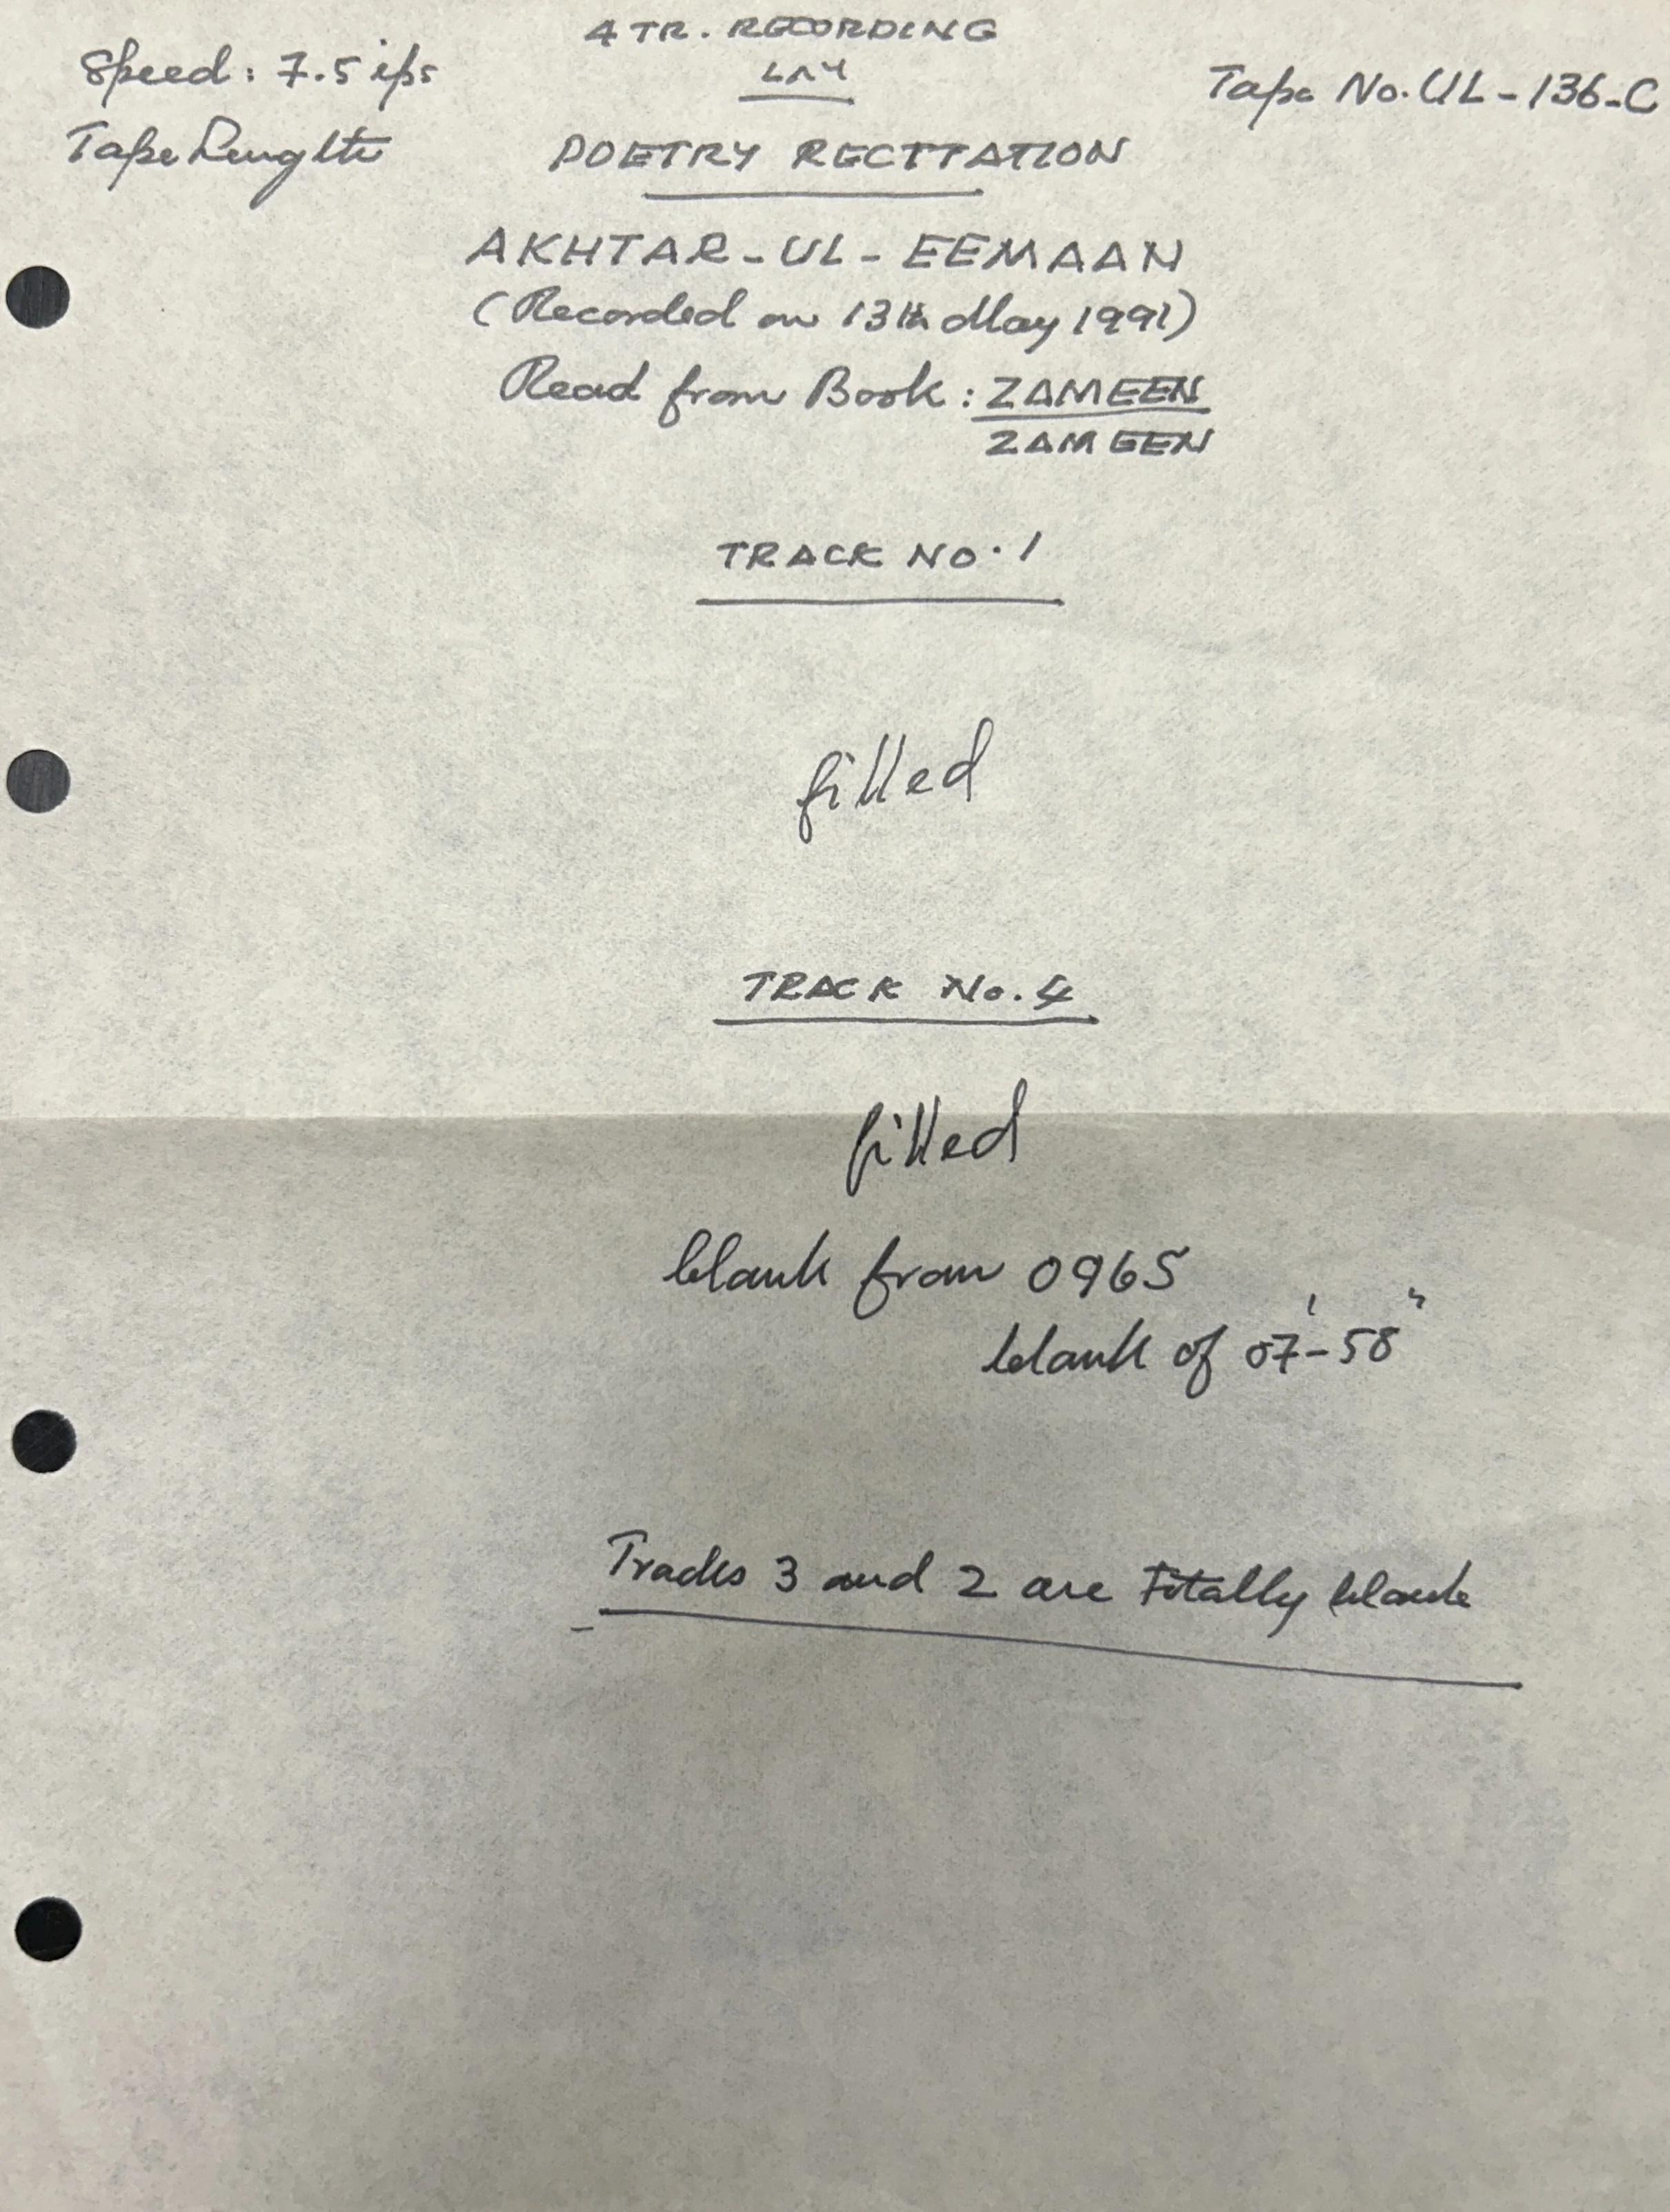 4 TR. RECORDING
Speed: 7.5 ips
1 ^ 4
Tape No. UL-136-C
Tape Length
POETRY RECITATION
AKHTAR-UL-EEMAAN
(Recorded on 13th May 1991)
Read from Book: ZAMEEN
ZAMEEN
TRACK NO. 1
filled
TRACK No. 4
filled
blank from 0965
blank of 07'-58"
Tracks 3 and 2 are totally blank